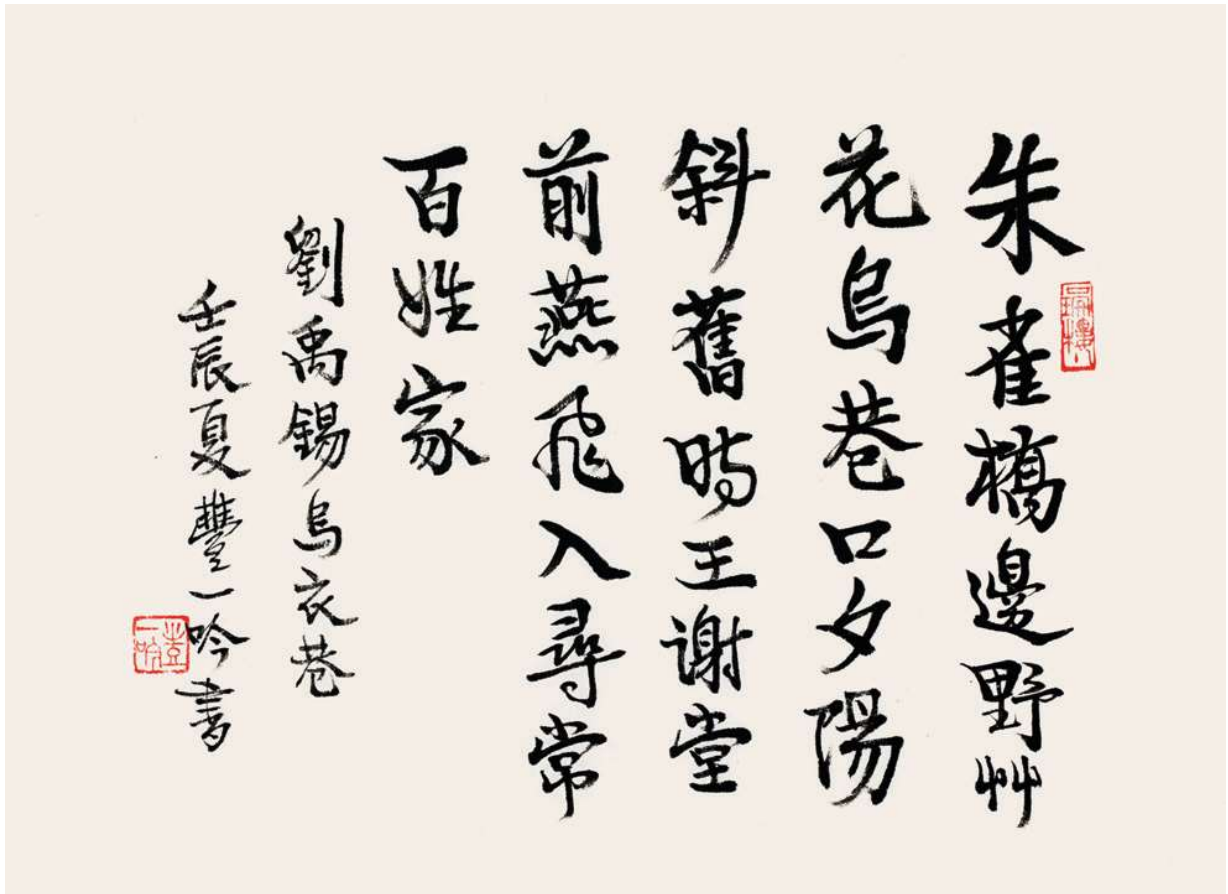 朱雀橋邊野艸
花烏巷口夕陽
斜舊時王谢堂
前燕飛入尋常
百姓家
劉禹錫烏衣巷
壬辰夏豐一吟書
豐一吟